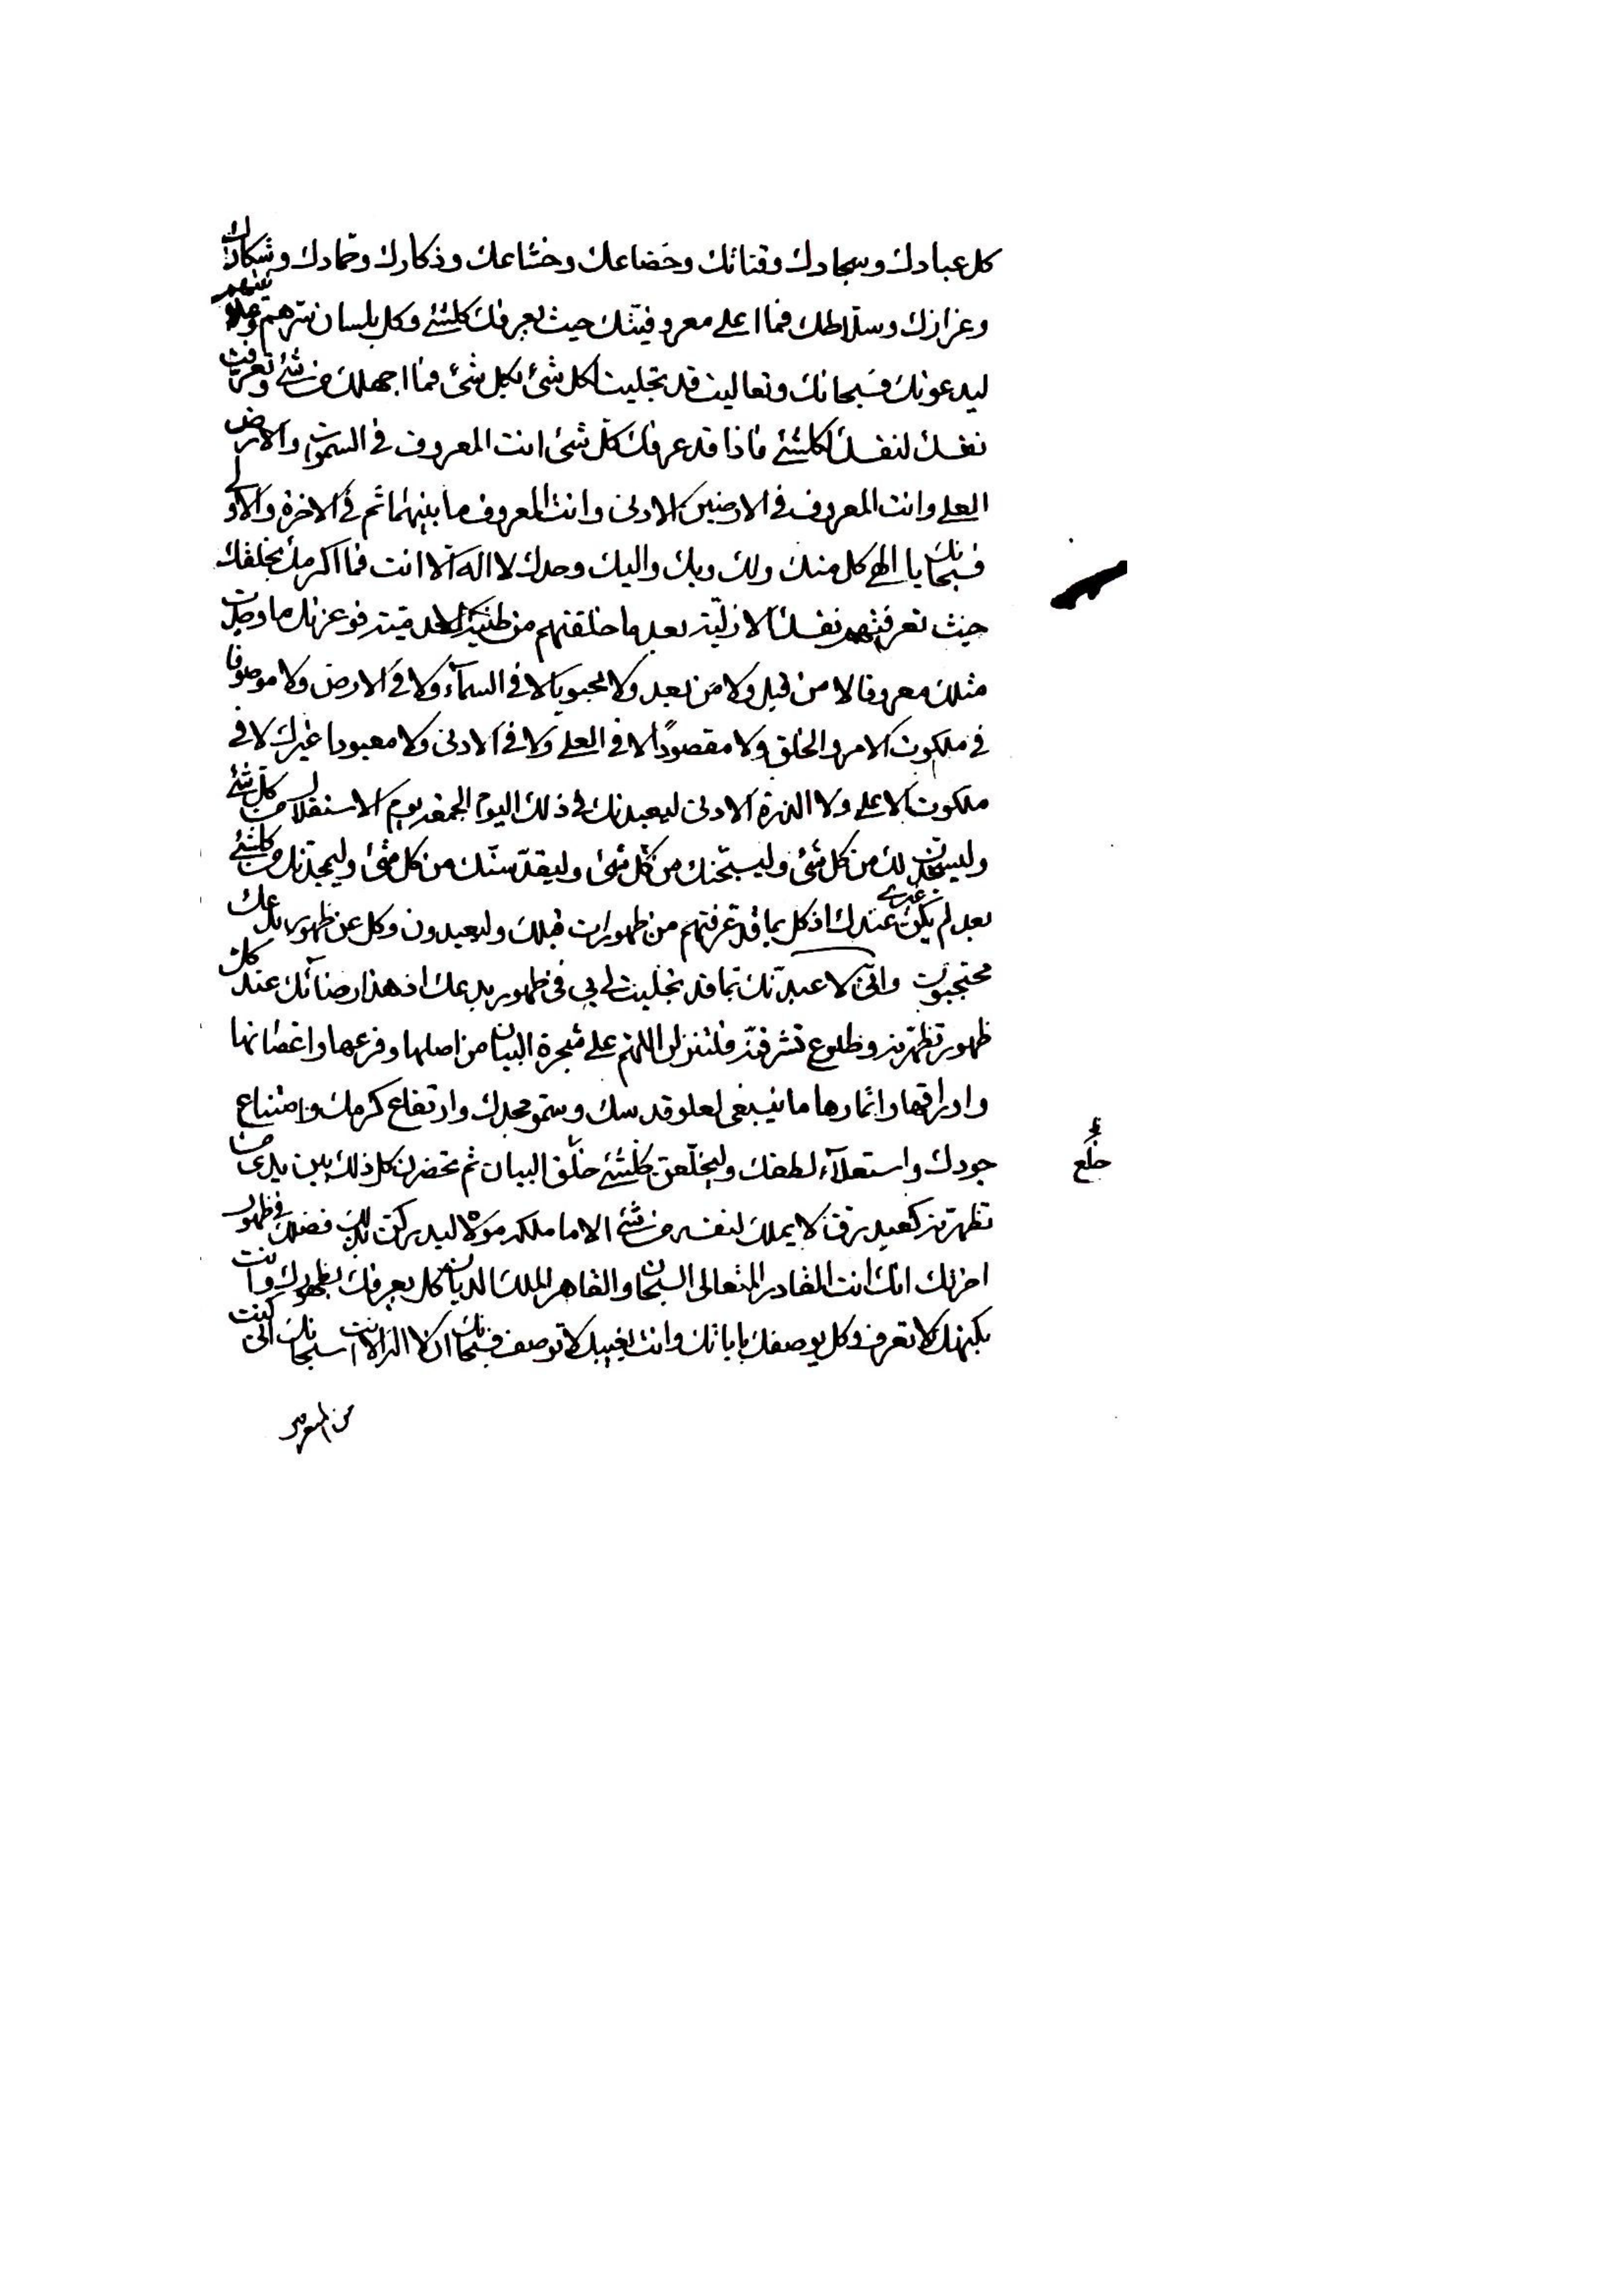 كل عبادك وسجادك وقنائك وخضاعك وخشاعك وذكارك وحمادك وشكارك
وعزازك وسلاطك فما اعلى معروفيتك حيث يعرفنك كلشئ وكل بلسان سرهم وعلانيتهم
ليدعونك فسبحانك وتعاليت قد تجليت لكل شئ بكل شئ فما اجهلك من شئ وتعرفت
نفسك لنفسك لكلشئ فاذا قد عرفك كل شئ انت المعروف في السموات والارض
العلى وانت المعروف في الارضين الادنى وانت المعروف ما بينهما ثم في الاخرة والاولى
فسبحانك يا الهي كل منك ولك وبك واليك وحدك لا اله الا انت فما اكرمك بخلقك
حيث تعرفتهم نفسك الازلية بعد ما خلقتهم من طينة فو عزتك ما وجدت
مثلك معروفا لا من قبل ولا من بعد ولا محبوبا لا في السمآء ولا في الارض ولا موصوفا
في ملكوت الامر والخلق ولا مقصودًا لا في العلى ولا في الادنى ولا معبودا غيرك لا في
ملكوت الاعلى ولا الذرة الادنى ليعبدنك في ذلك اليوم الجمعة يوم الاستقلال من كل شئ
وليسجدن لك من كل شئ وليسبحنك من كل شئ وليقدسنك من كل شئ وليمجدنك من كلشئ
بعد لم يكن عندك غيري اذ كل بما قد عرفتهم من ظهورات قبلك وليعبدون وكل عن ظهور بدعك
محتجبون وانني لاعبدنك بما قد تجليت لي بي في ظهور بدعك اذ هذا رضائك عند كل
ظهور تظهرنه وطلوع تشرقنه فلتنزلن اللهم على شجرة البيان من اصلها وفرعها واغصانها
واوراقها واثمارها ما ينبغي لعلو قدسك وسمو مجدك وارتفاع كرمك وامتناع
جودك واستعلآء لطفك وليخلعن كلشئ خلق البيان ثم تحضرن كل ذلك بين يدى من
خلع
تظهرنه كعبد رق لا يملك لنفسه من شئ الا ما ملكه مولاه ليدركن بذلك فضلك في ظهور
اخرتك انك انت القادر المتعالى السبحان والقاهر الملك الديان كل يعرفك بظهورك وانت
بكينونيتك لا تعرف وكل يوصفك باياتك وانت بغيبك لا توصف فسبحانك ان لا اله الا انت سبحانك اني كنت